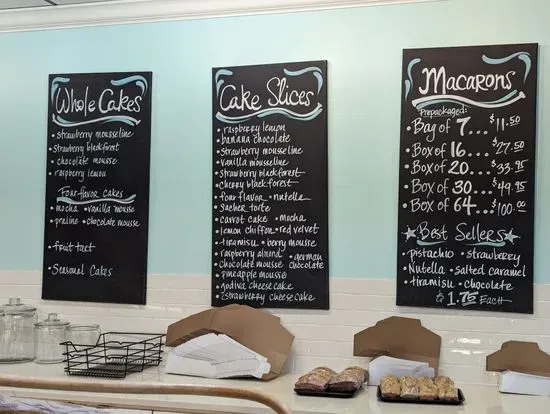 Whole Cakes
• strawberry mousseline
• strawberry blackforest
• chocolate mousse
• raspberry lemon
Four flavor cakes
• mocha • vanilla mousse
• praline • chocolate mousse
• fruit tart
• Seasonal Cakes
Cake Slices
• raspberry lemon
• banana chocolate
• strawberry mousseline
• vanilla mousseline
• strawberry blackforest
• cherry blackforest
• four flavor • nutella
• sacher torte
• carrot cake • mocha
• lemon chiffon • red velvet
• tiramisu • berry mousse
• raspberry almond • german chocolate
• chocolate mousse
• pineapple mousse
• godiva cheesecake
• strawberry cheesecake
Macarons
Prepackaged:
• Bag of 7... $11.50
• Box of 16... $27.50
• Box of 20... $33.95
• Box of 30... $49.95
• Box of 64... $100.00
Best Sellers
• pistachio • strawberry
• Nutella • salted caramel
• tiramisu • chocolate
$1.75 Each